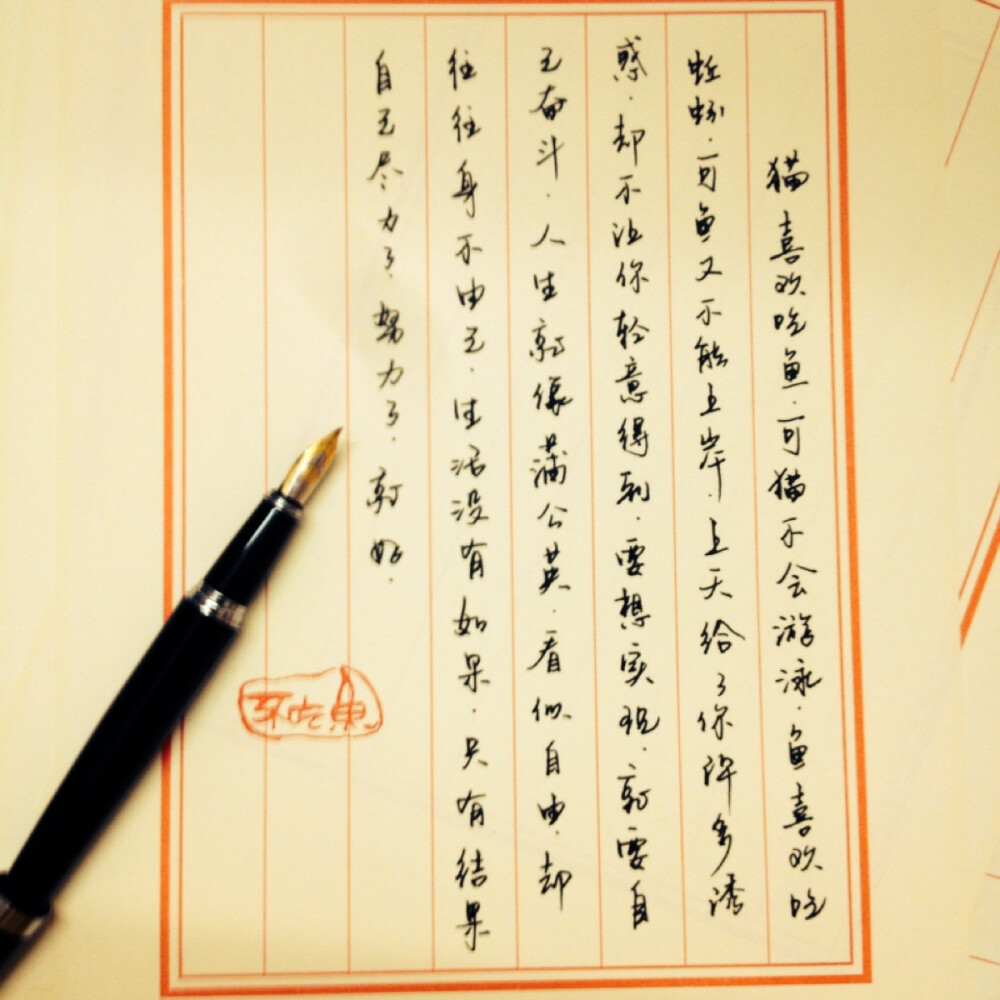 猫喜欢吃鱼.可猫不会游泳.鱼喜欢吃
蚯蚓.可鱼又不能上岸.上天给了你许多诱
惑.却不让你轻意得到.要想实现.就要自
己奋斗.人生就像蒲公英.看似自由.却
往往身不由己.生活没有如果.只有结果
自己尽力了.努力了.就好.
不吃鱼